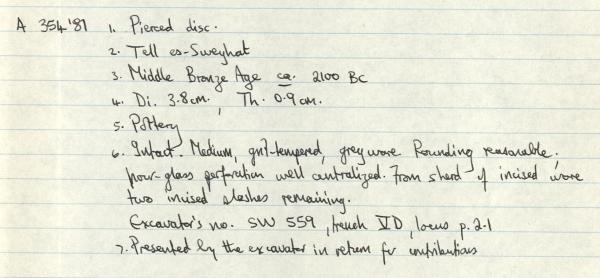 A 354'81 1. Pierced disc.
2. Tell es-Sweyhat
3. Middle Bronze Age ca. 2100 BC
4. Di. 3.8cm, Th. 0.9cm.
5. Pottery
6. Intact. Medium, grit-tempered, grey ware. Rounding reasonable,
hour-glass perforation well centralized. From sherd of incised ware
two incised slashes remaining.
Excavator's no. SW 559, trench VD, locus p. 2.1
7. Presented by the excavator in return for contributions